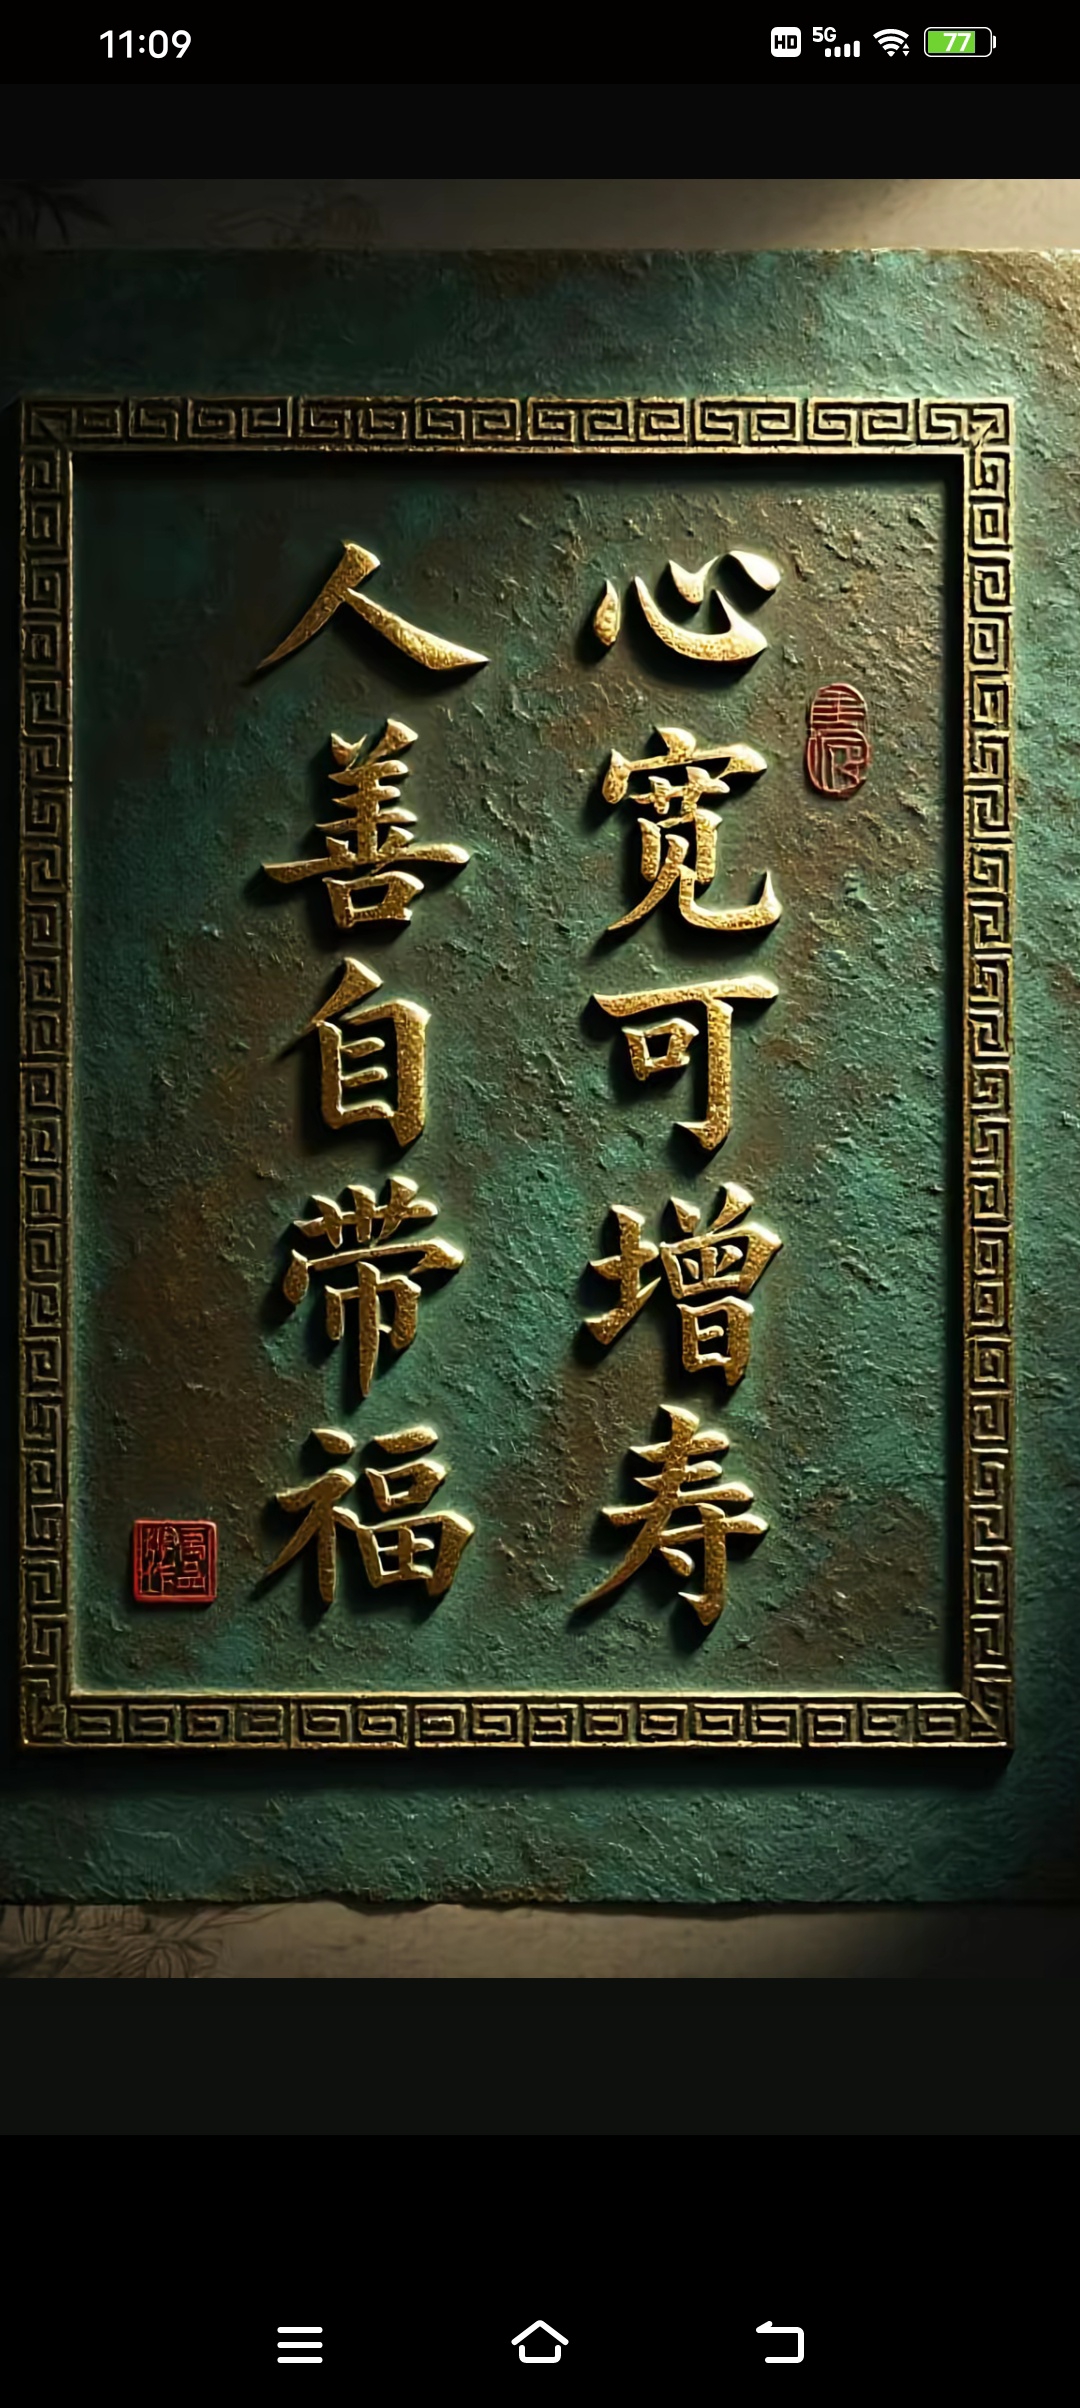 11:09
HD 5G 77
心宽可增寿
人善自带福